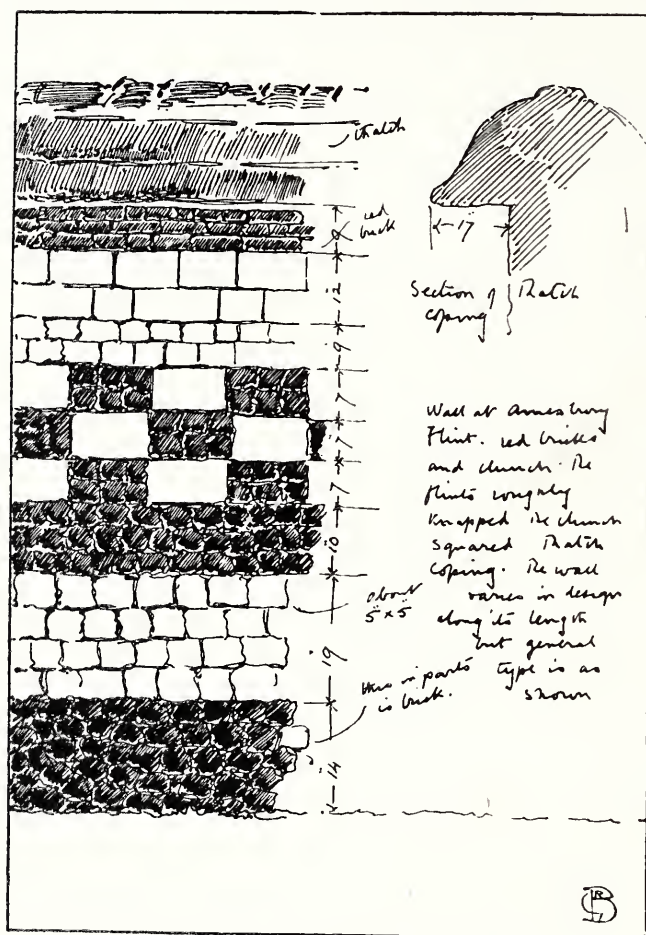 thatch
red
brick
12
9
7
7
7
10
about
5" x 5"
19
this in parts
is brick.
14
17"
Section of Thatch
coping
Wall at Amesbury
Flint. red bricks
and clunch. The
flints roughly
knapped the clunch
squared Thatch
coping. The wall
varies in design
along its length
but general
type is as
shown